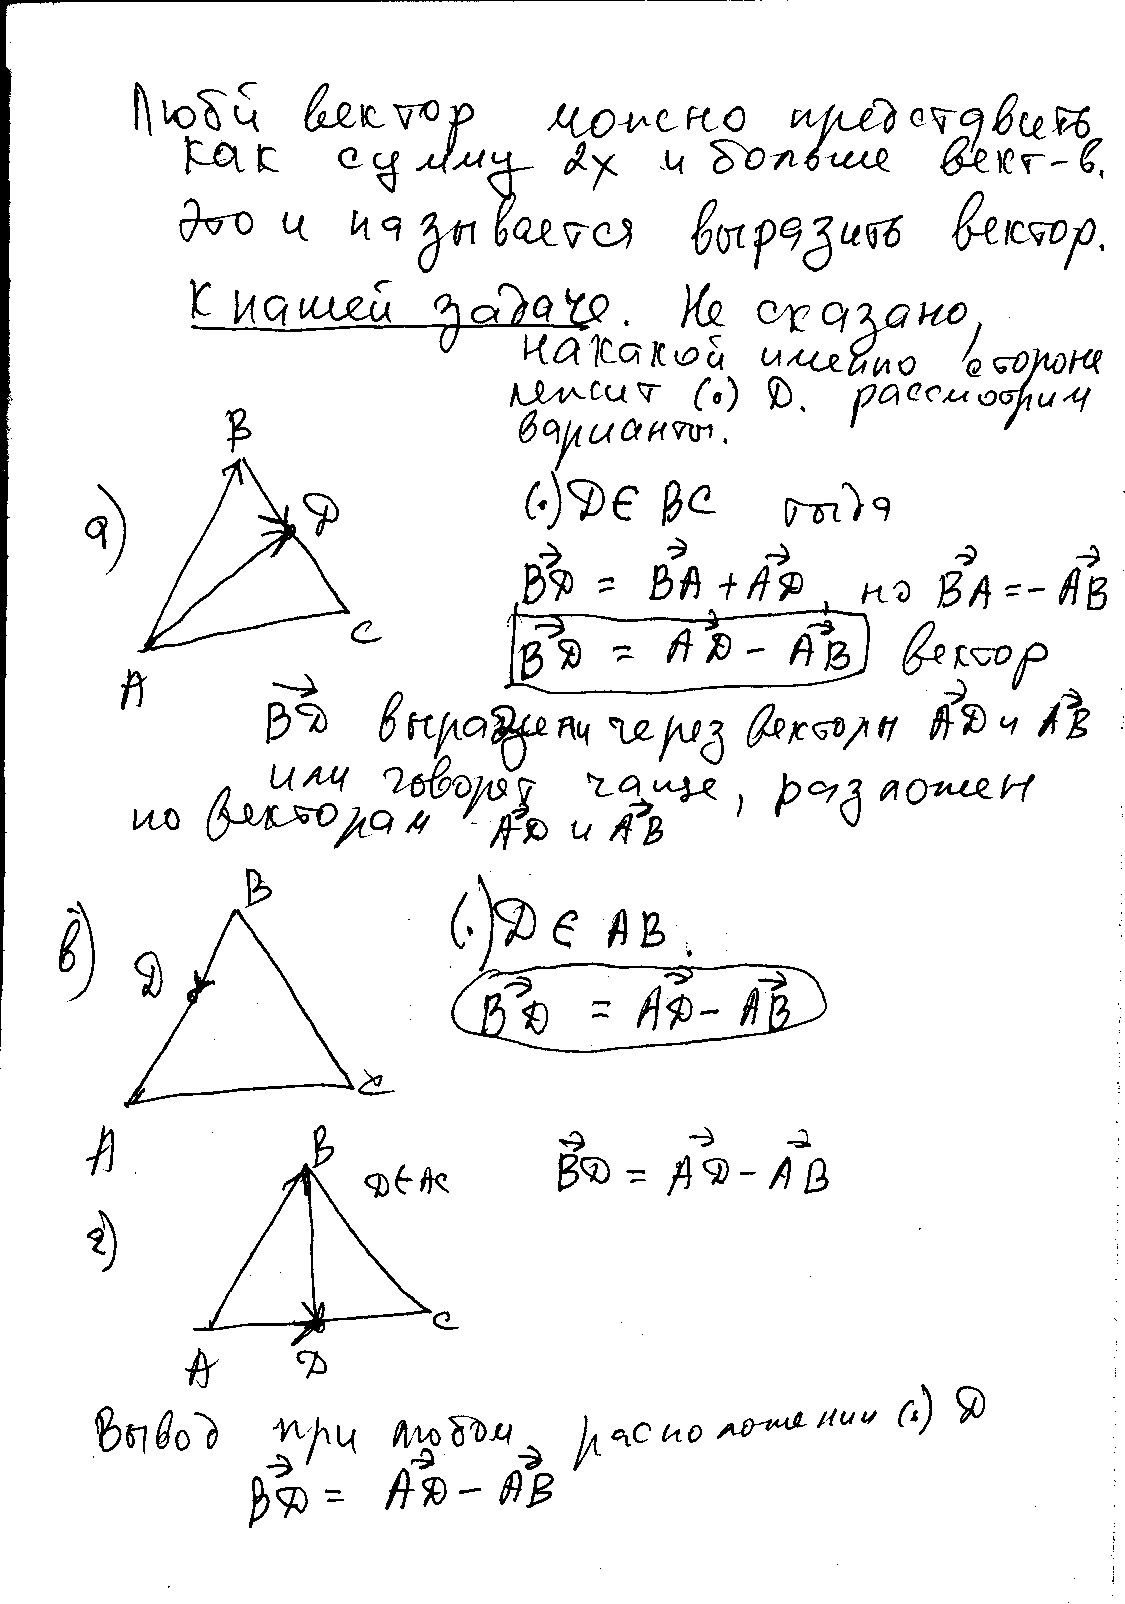 Любй вектор можно представить
как сумму 2х и больше вект-в.
это и называется выразить вектор.
К нашей задаче. Не сказано,
на какой именно стороне
лежит (.) D. рассмотрим
варианты.
а)
B
D
C
A
(.) D ∈ BC тогда
BD = BA + AD, но BA = - AB
BD = AD - AB вектор
BD выражен через векторы AD и AB
или говорят чаще, разложен
по векторам AD и AB
в)
B
D
A
C
(.) D ∈ AB.
BD = AD - AB
г)
B
D ∈ AC
A
D
C
BD = AD - AB
Вывод при любом расположении (.) D
BD = AD - AB